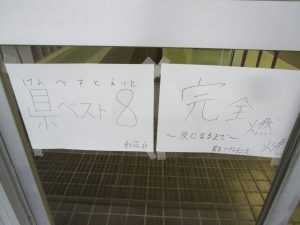 けんべすとえいと
県ベスト8
完全燃焼
～灰になるまで～